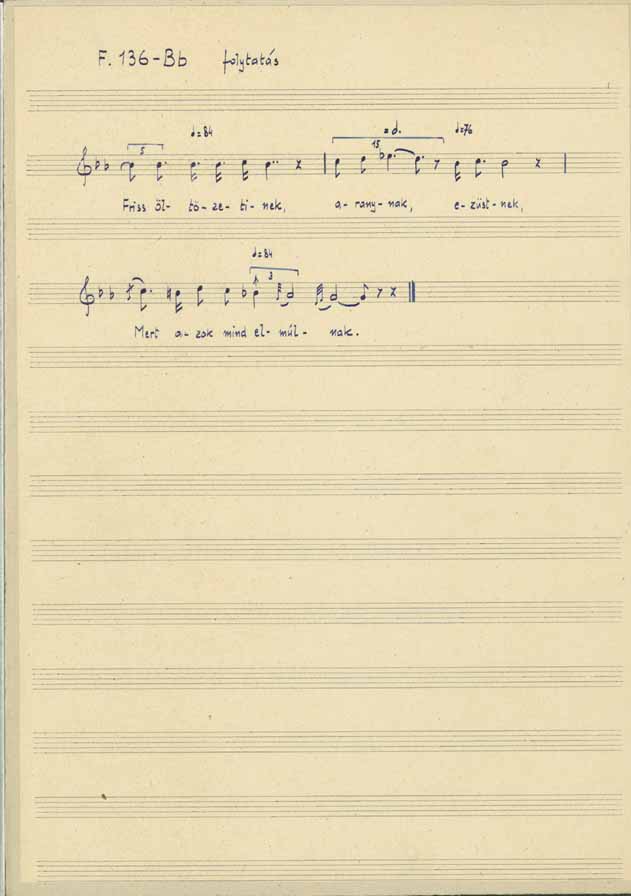 F. 136-Bb folytatás
♩=84 = ♩. ♩=76
5 15
Friss öl- tö- ze- ti- nek, a- rany- nak, e- züst- nek,
♩=84
3
Mert a- zok mind el- múl- nak.